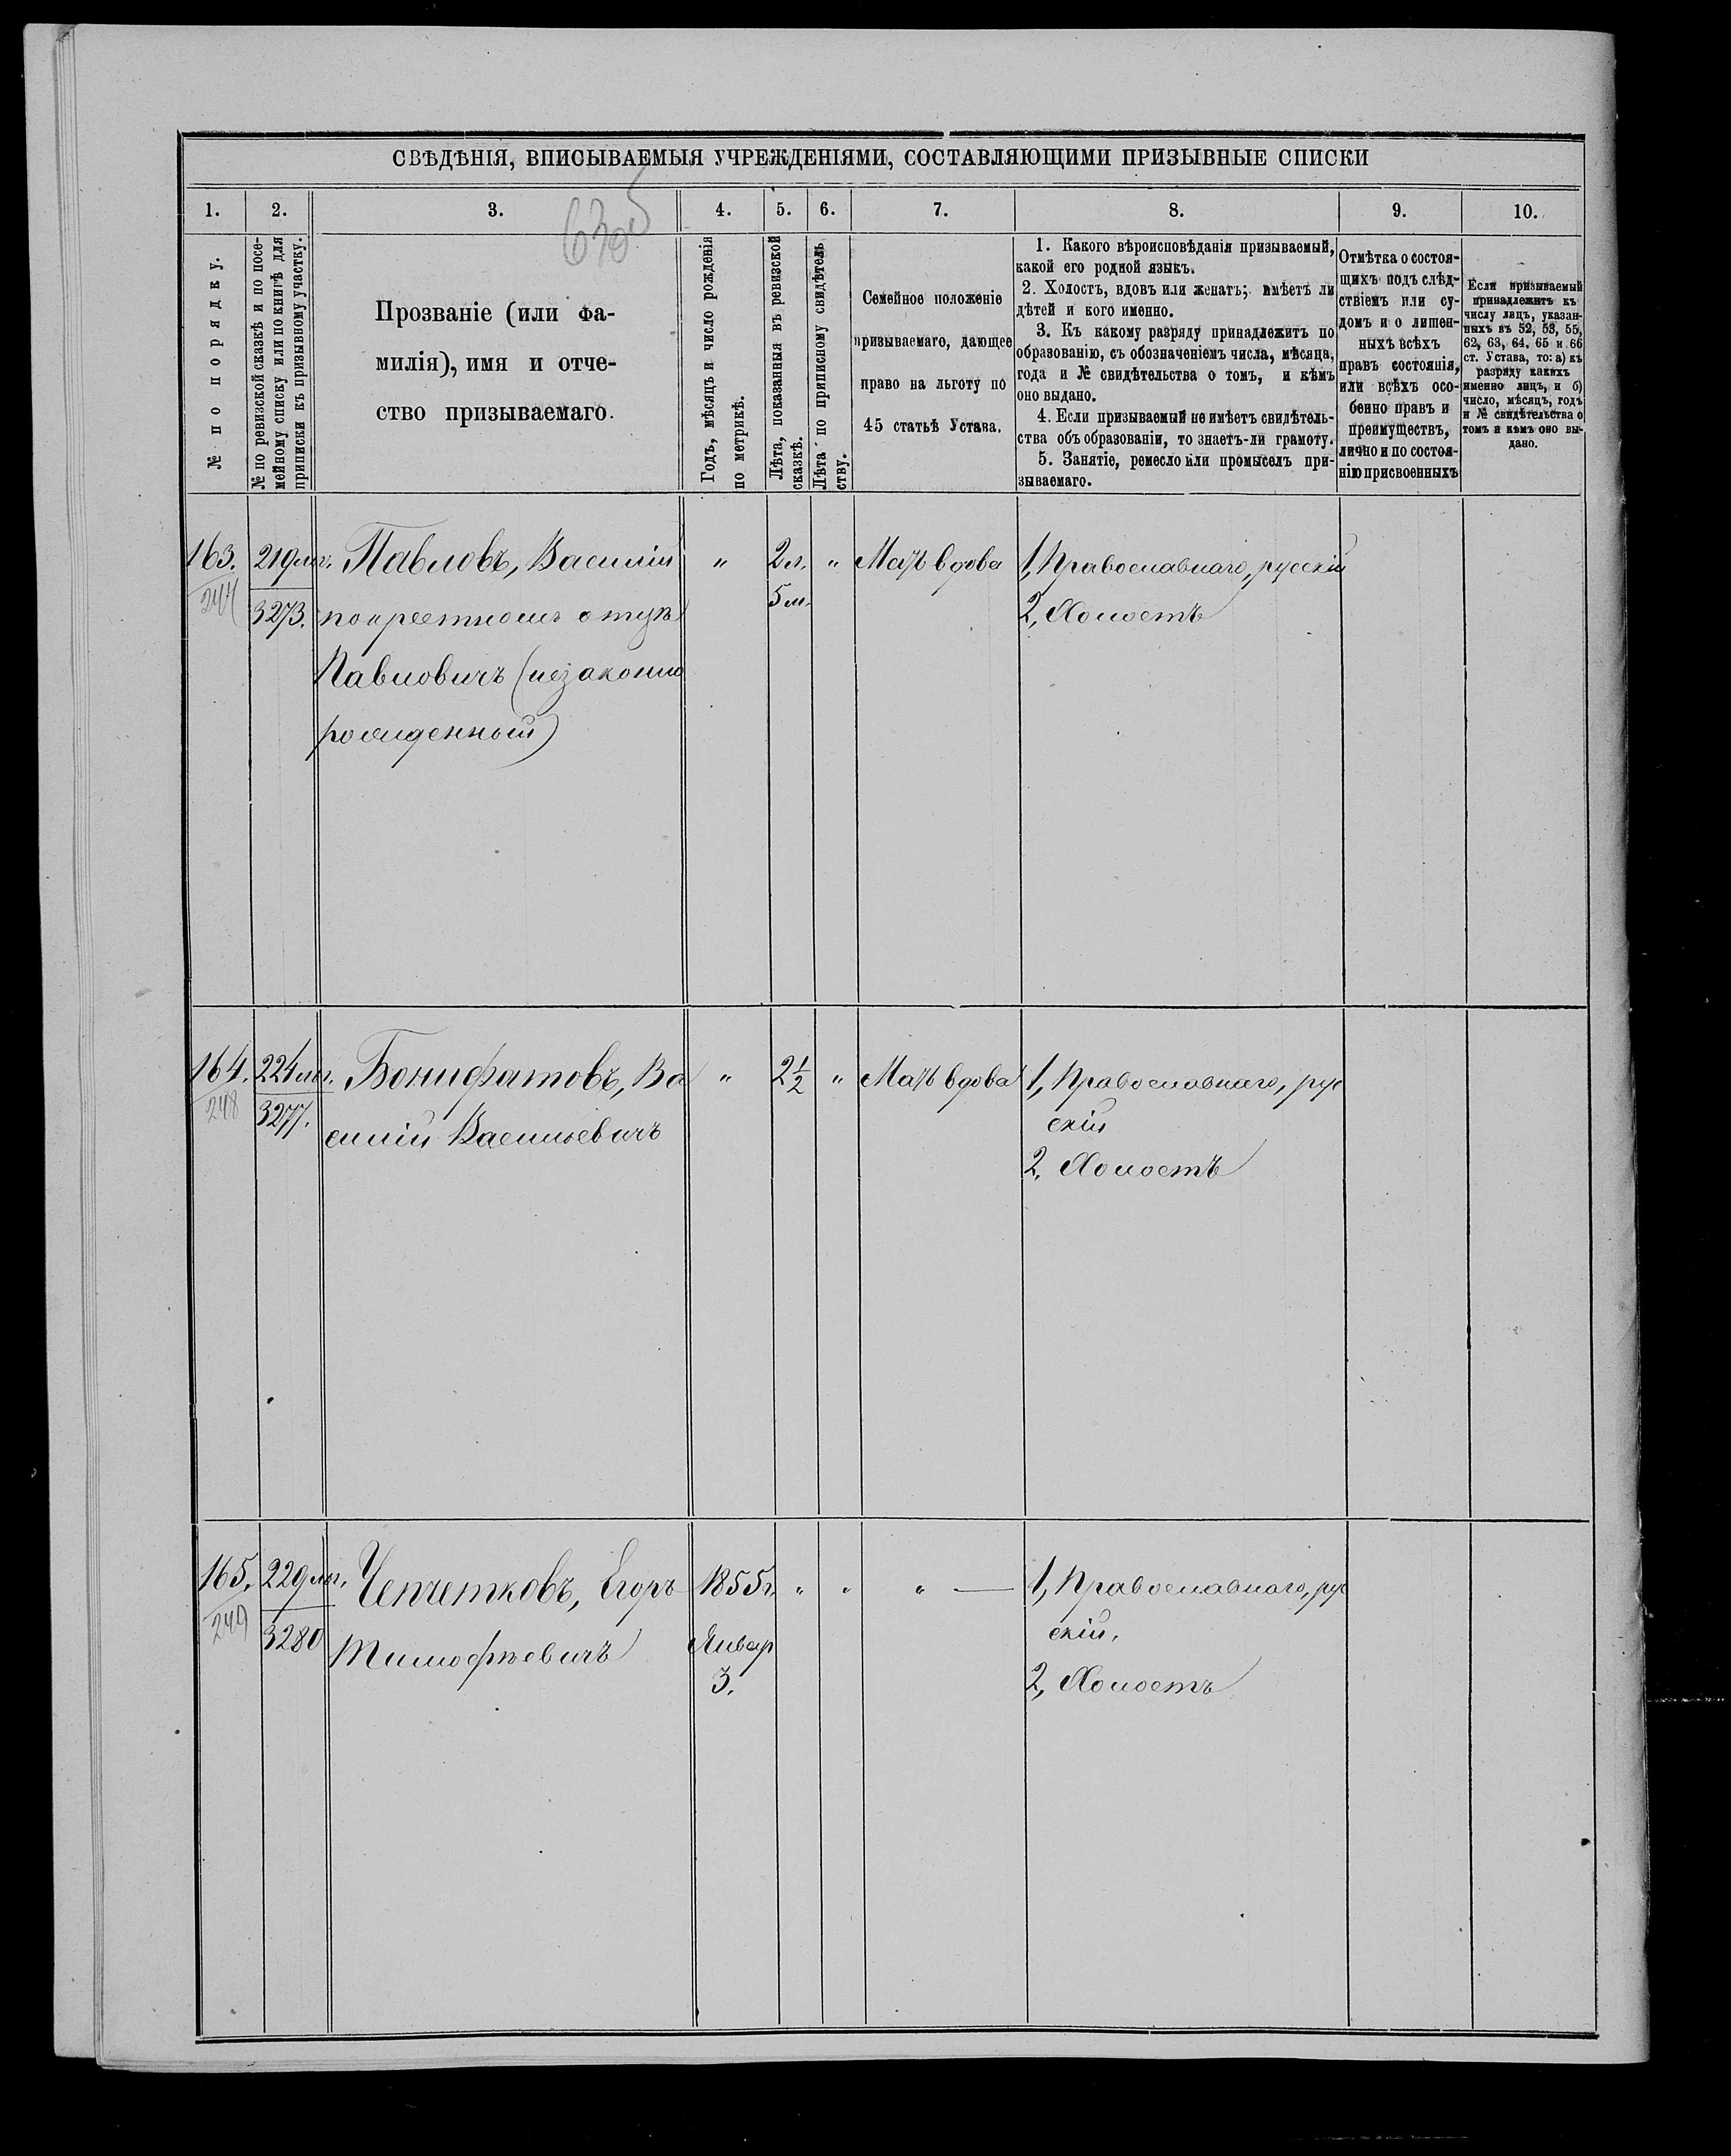 СВѢДѢНІЯ, ВПИСЫВАЕМЫЯ УЧРЕЖДЕНІЯМИ, СОСТАВЛЯЮЩИМИ ПРИЗЫВНЫЕ СПИСКИ
1.
2.
3.
4.
5.
6.
7.
8.
9.
10.
№ по порядку.
№ по ревизской сказкѣ и по посе-
мейному списку или по книгѣ для
приписки къ призывному участку.
Прозваніе (или фа-
милія), имя и отче-
ство призываемаго.
Годъ, мѣсяцъ и число рожденія
по метрикѣ.
Лѣта, показанныя въ ревизской
сказкѣ.
Лѣта по приписному свидѣтель
ству.
Семейное положеніе
призываемаго, дающее
право на льготу по
45 статьѣ Устава.
1. Какого вѣроисповѣданія призываемый,
какой его родной языкъ.
2. Холостъ, вдовъ или женатъ; имѣетъ ли
дѣтей и кого именно.
3. Къ какому разряду принадлежитъ по
образованію, съ обозначеніемъ числа, мѣсяца,
года и № свидѣтельства о томъ, и кѣмъ
оно выдано.
4. Если призываемый не имѣетъ свидѣтель-
ства объ образованіи, то знаетъ-ли грамоту.
5. Занятіе, ремесло или промыселъ при-
зываемаго.
Отмѣтка о состоя-
щихъ подъ слѣд-
ствіемъ или су-
домъ и о лишен-
ныхъ всѣхъ
правъ состоянія,
или всѣхъ осо-
бенно правъ и
преимуществъ,
лично и по состоя-
нію присвоенныхъ
Если призываемый
принадлежитъ къ
числу лицъ, указан-
ныхъ въ 52, 53, 55,
62, 63, 64, 65 и 66
ст. Устава, то: а) къ
разряду какихъ
именно лицъ, и б)
число, мѣсяцъ, годъ
и № свидѣтельства о
томъ и кѣмъ оно вы-
дано.
163.
219
3273.
Павловъ, Василій
по крестному отцѣ
Павловичъ (незаконно
рожденный)
"
2 л.
5 м.
"
Мать вдова
1, Православнаго, русскій
2, Холостъ
164.
248
224
3277.
Бонифатовъ, Ва
силій Васильевичъ
"
2 1/2
"
Мать вдова
1, Православнаго, рус
скій
2, Холостъ
165.
249
229
3280
Чепчетковъ, Егоръ
Тимофѣевичъ
1855 г.
Январ
3.
"
"
" —
1, Православнаго, рус
скій.
2, Холостъ